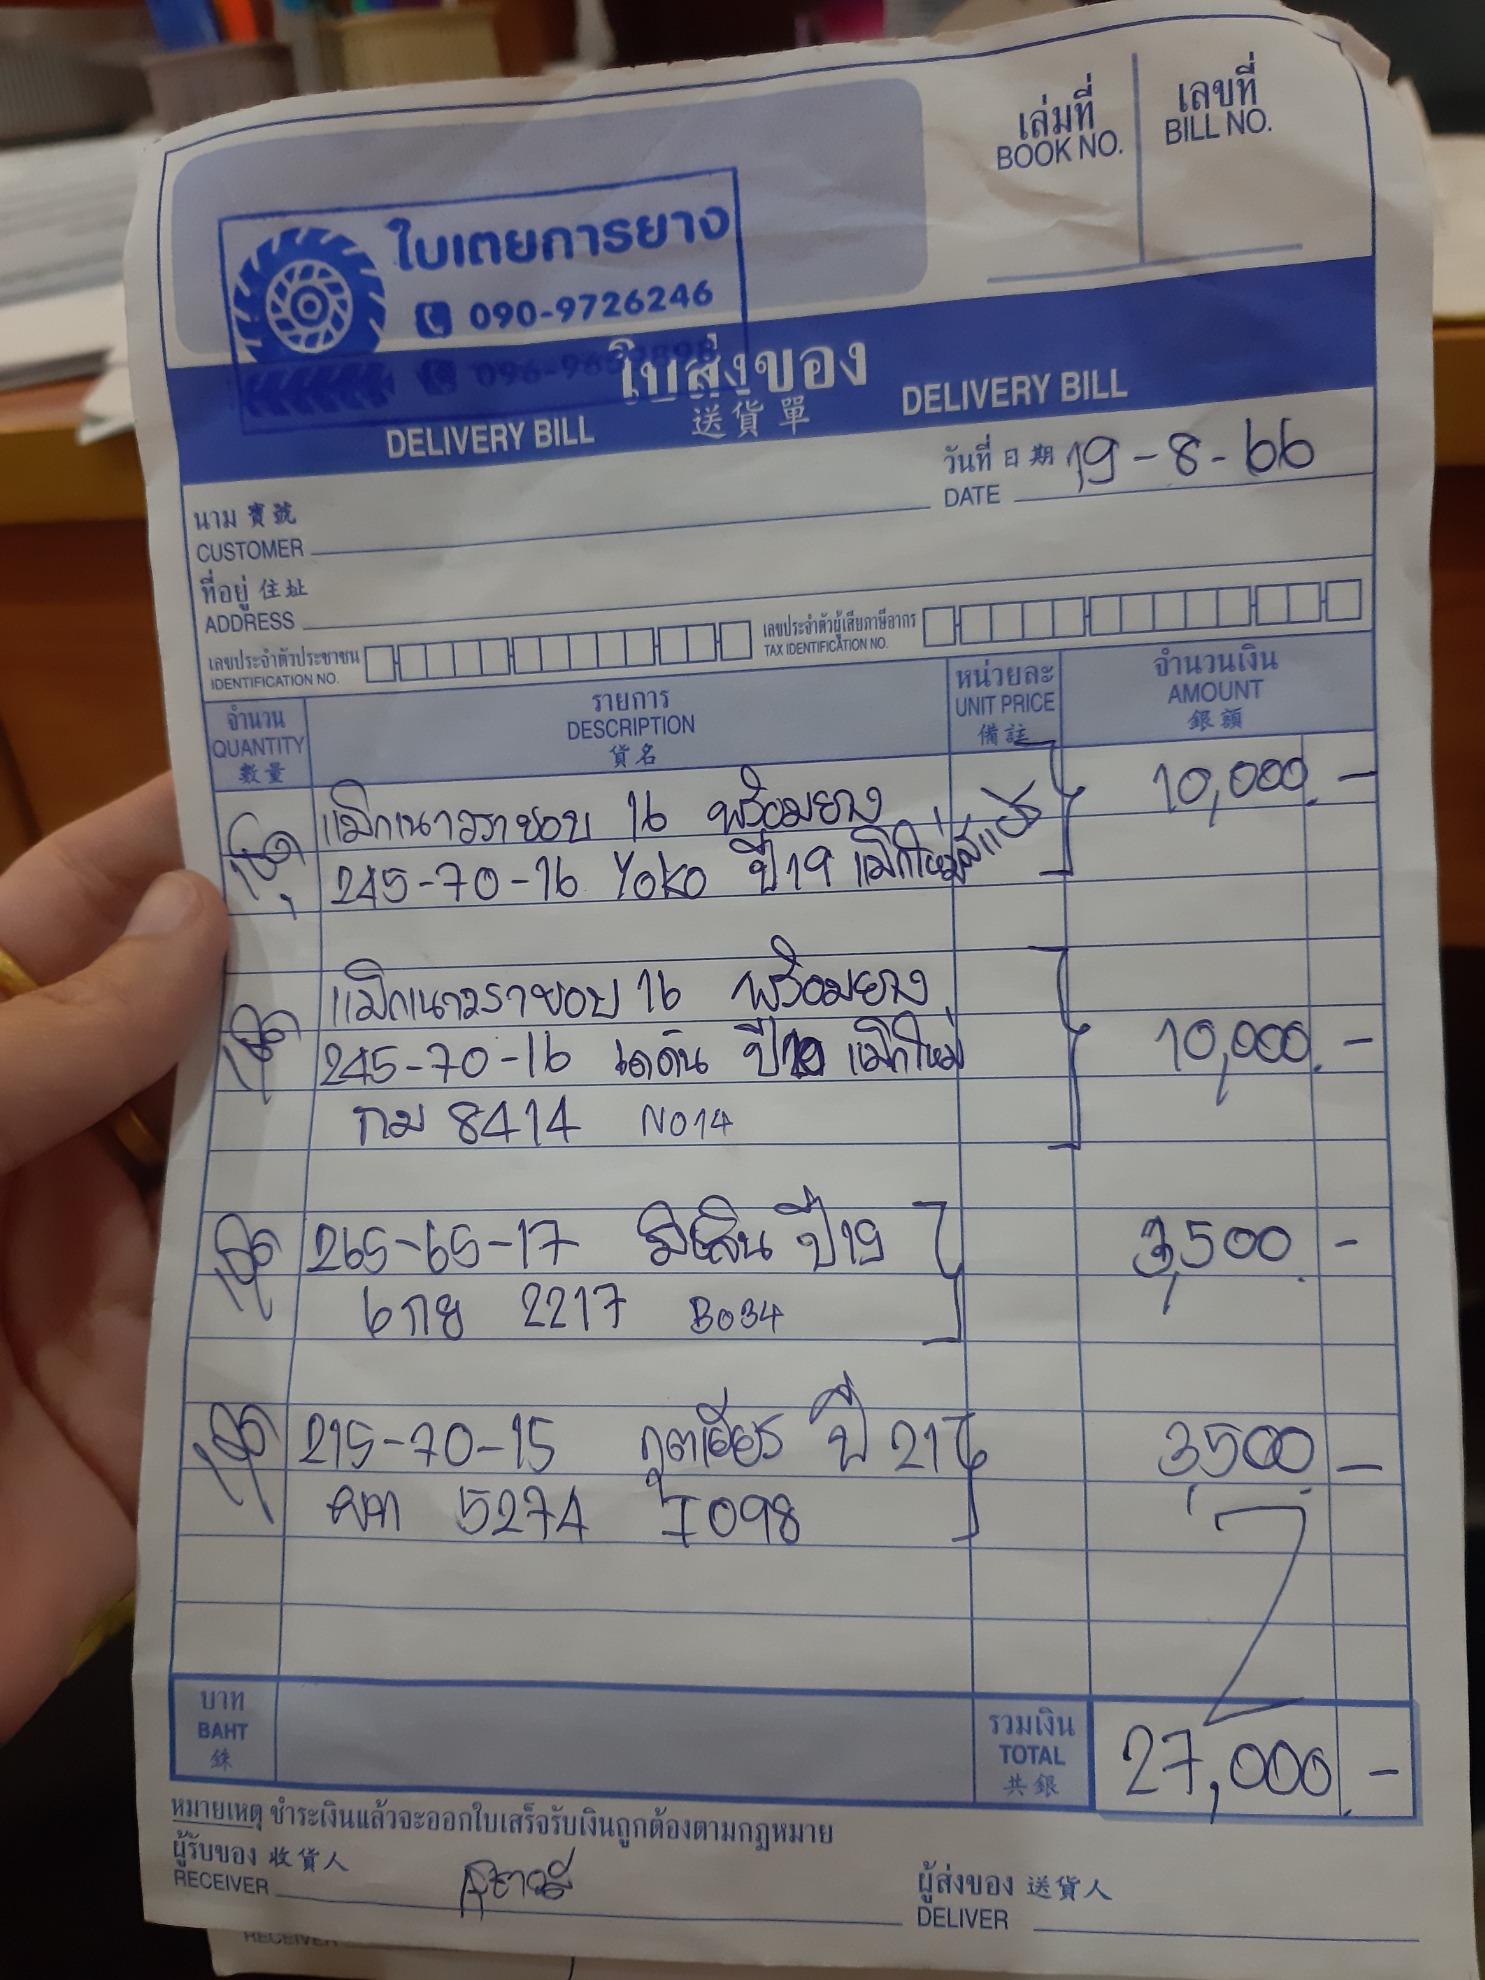 เล่มที่
BOOK NO.
เลขที่
BILL NO.
ใบเตยการยาง
090-9726246
ใบส่งของ
DELIVERY BILL 送貨單 DELIVERY BILL
วันที่ 日期 19-8-66
DATE
นาม 寶號
CUSTOMER
ที่อยู่ 住址
ADDRESS
เลขประจำตัวประชาชน
IDENTIFICATION NO.
เลขประจำตัวผู้เสียภาษีอากร
TAX IDENTIFICATION NO.
จำนวน
QUANTITY
數量
รายการ
DESCRIPTION
貨名
หน่วยละ
UNIT PRICE
備註
จำนวนเงิน
AMOUNT
銀額
แม็กเนาวราขอบ 16 พร้อมยาง 10,000.-
245-70-16 Yoko ปี19 แม็กใหม่
แม็กเนาวราขอบ 16 พร้อมยาง
245-70-16 ปี แม็กใหม่ 10,000.-
กม 8414 NO14
265-65-17 มิสลิน ปี19 3,500.-
6กย 2217 B034
215-70-15 กูดเยียร ปี 21 3,500.-
5274 I098
บาท
BAHT
銖
รวมเงิน
TOTAL
共銀
27,000.-
หมายเหตุ ชำระเงินแล้วจะออกใบเสร็จรับเงินถูกต้องตามกฎหมาย
ผู้รับของ 收貨人
RECEIVER
ผู้ส่งของ 送貨人
DELIVER
RECEIVER